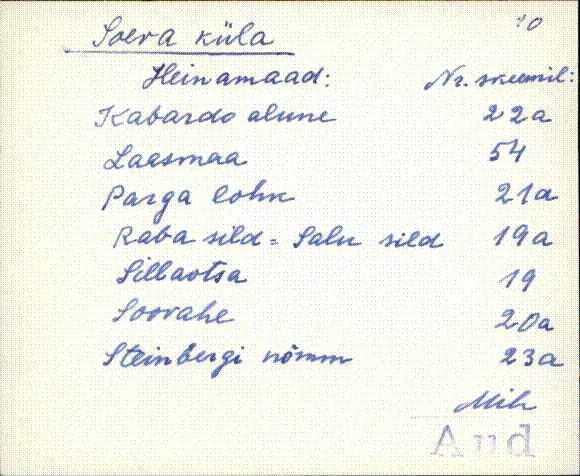 10
Soeva küla
Heinamaad: Nr. skeemil:
Kabardo alune 22a
Laasmaa 54
Parga lohk 21a
Raba sild = Salu sild 19a
Sillaotsa 19
Soovahe 20a
Steinbergi nõmm 23a
Mih
Aud